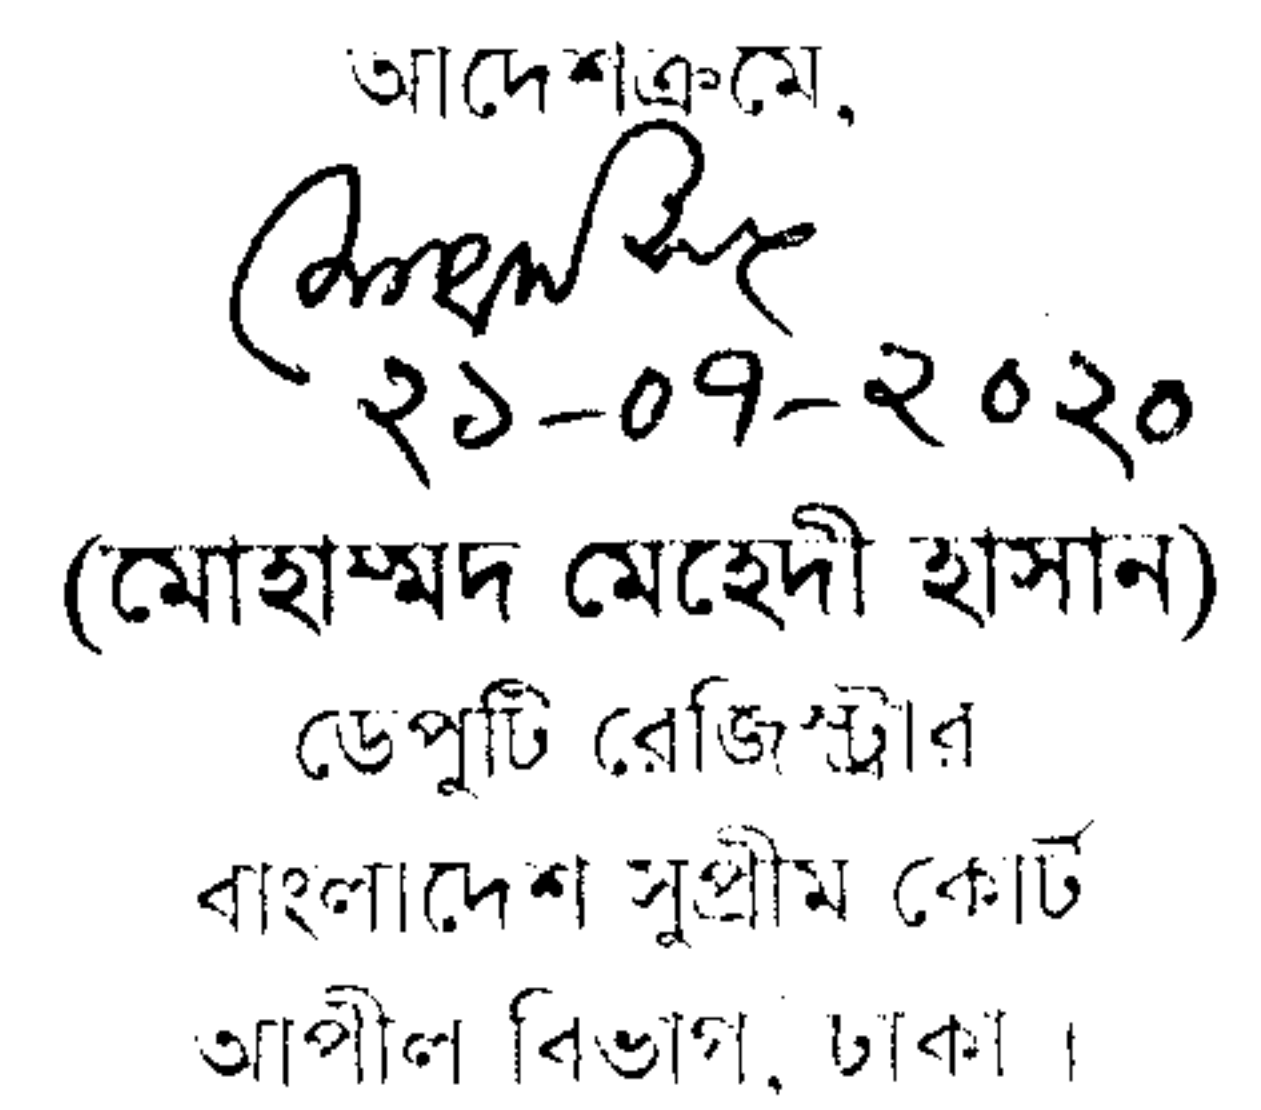 আদেশক্রমে,
২১-০৭-২০২০
(মোহাম্মদ মেহেদী হাসান)
ডেপুটি রেজিস্ট্রার
বাংলাদেশ সুপ্রীম কোর্ট
আপীল বিভাগ, ঢাকা ।